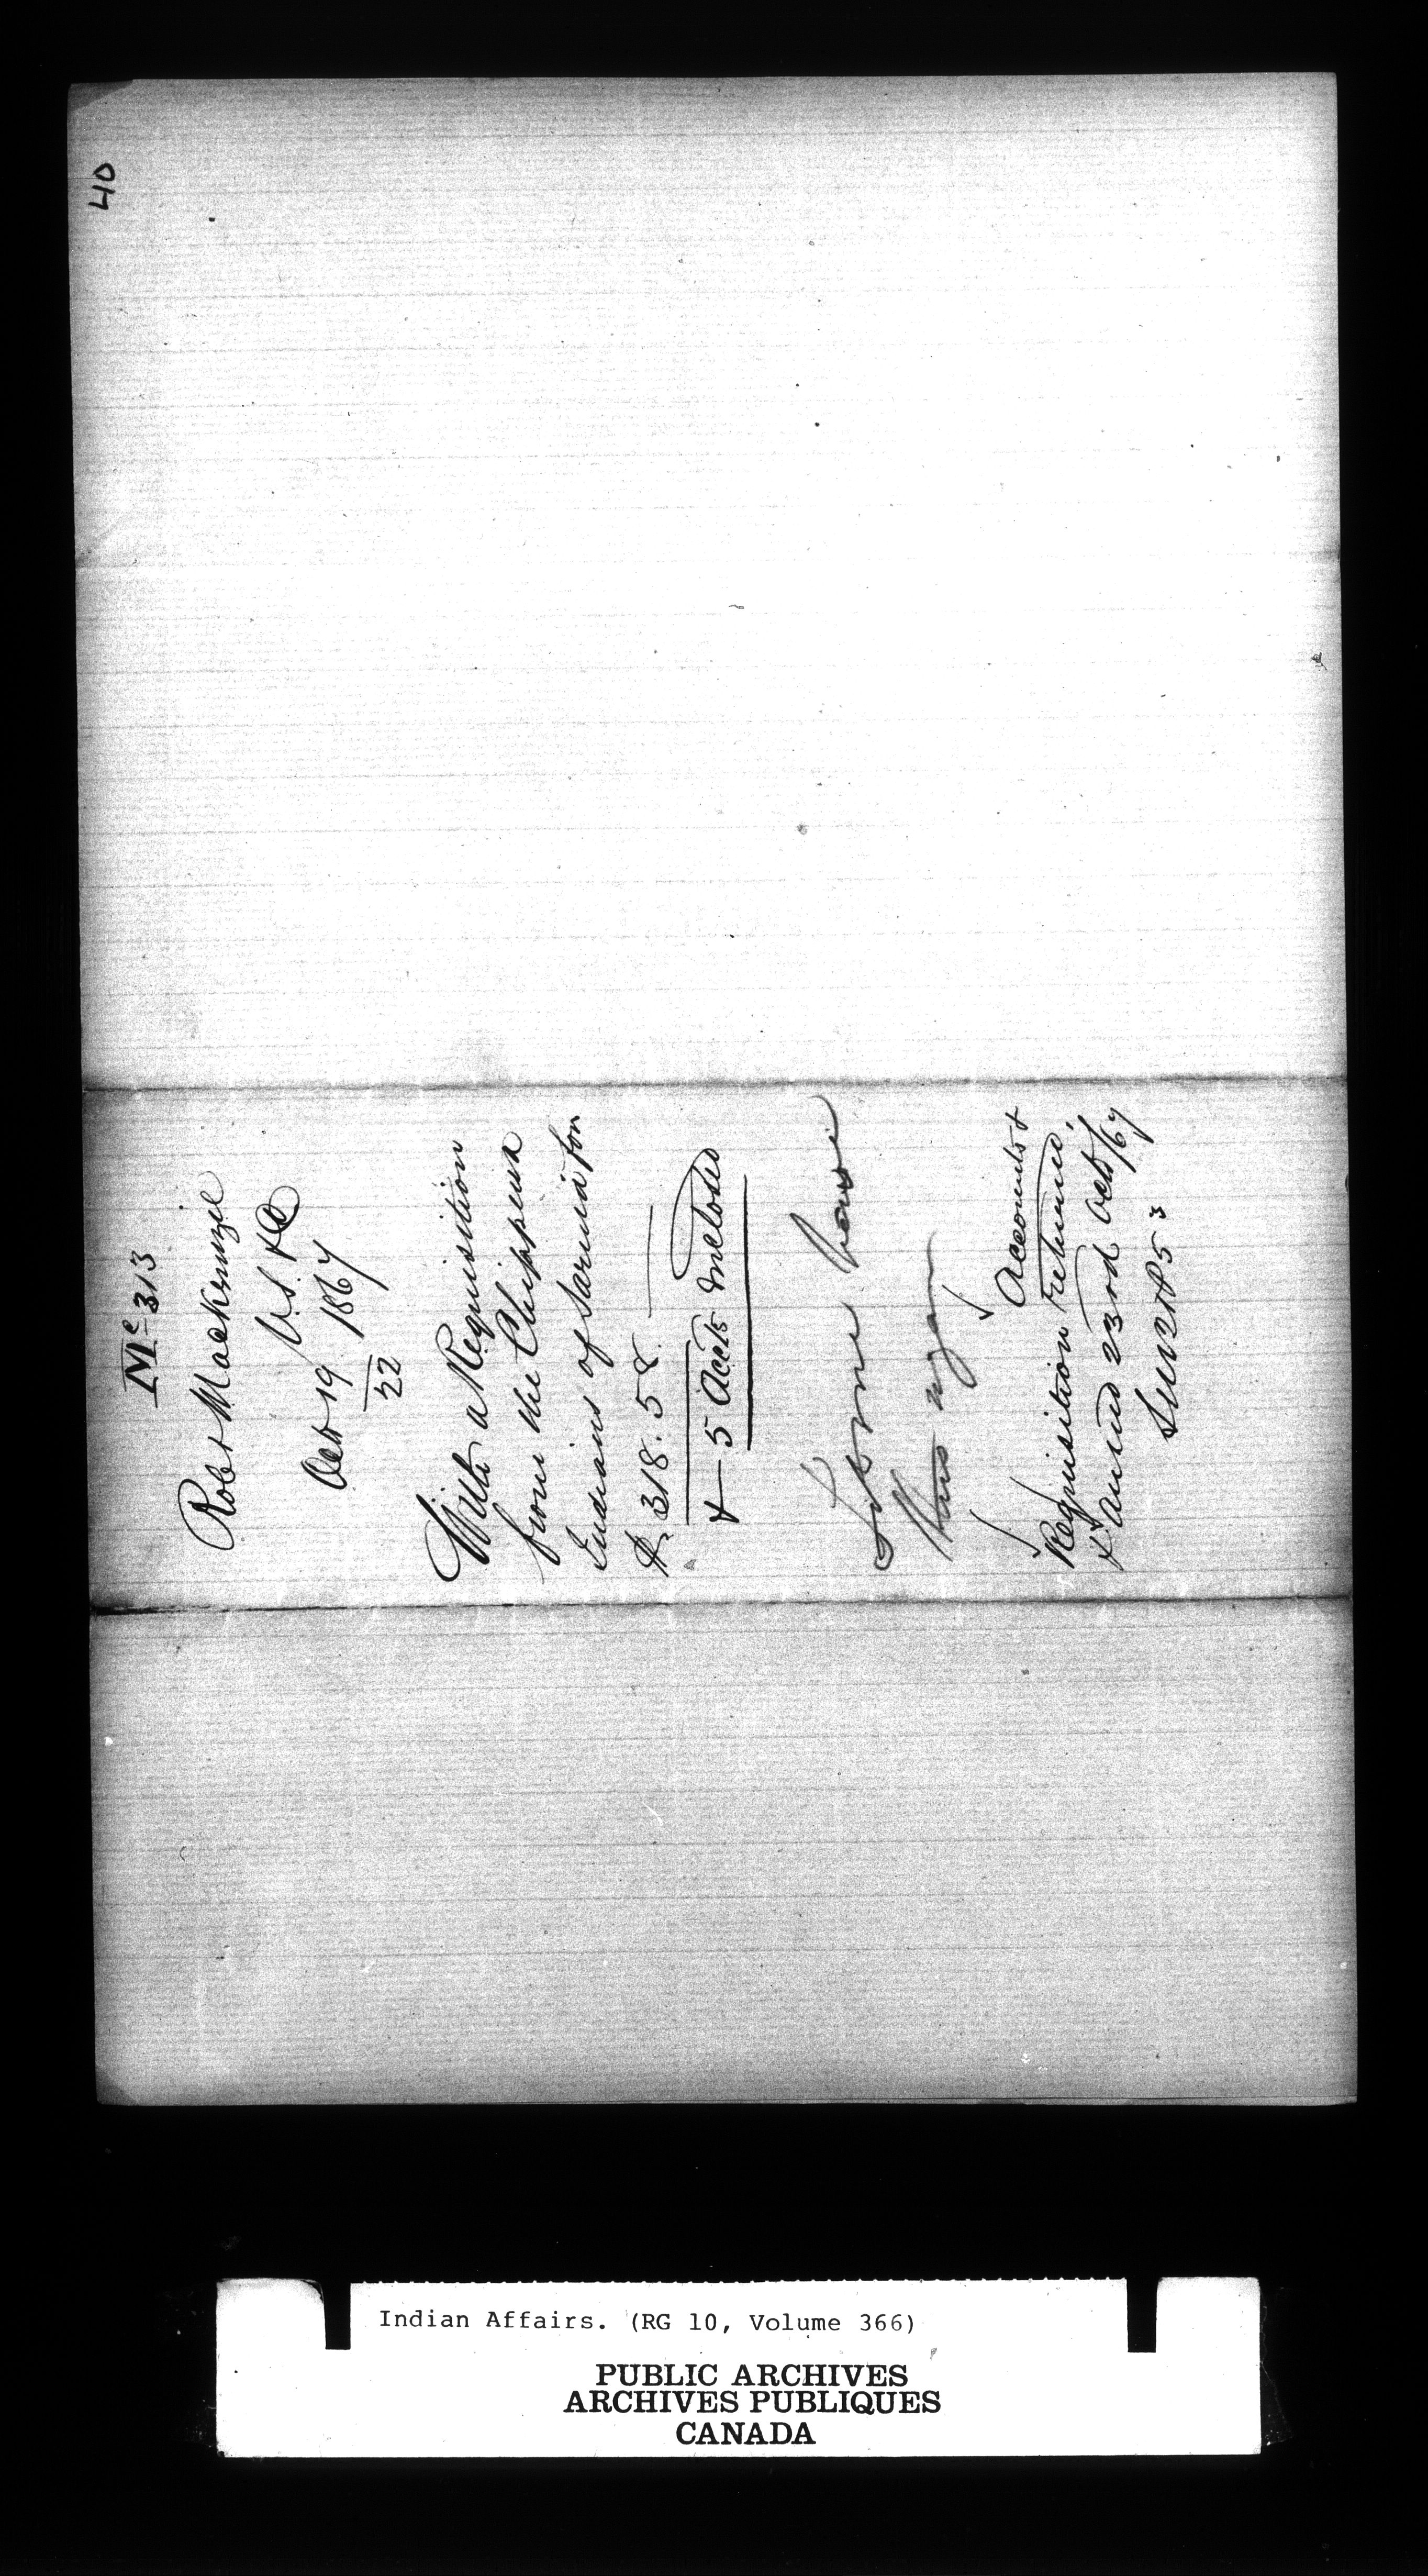 40
Mc 313
Robt Mackenzie
V.S. & Co
Oct 19 1867
22
With a Requisition
from the Chippewa
Indians of Sarnia for
$318.58
& 5 Accts inclosed
have
this
Accounts &
Requisition returned,
& 23rd Oct/67
Indian Affairs. (RG 10, Volume 366)
PUBLIC ARCHIVES
ARCHIVES PUBLIQUES
CANADA